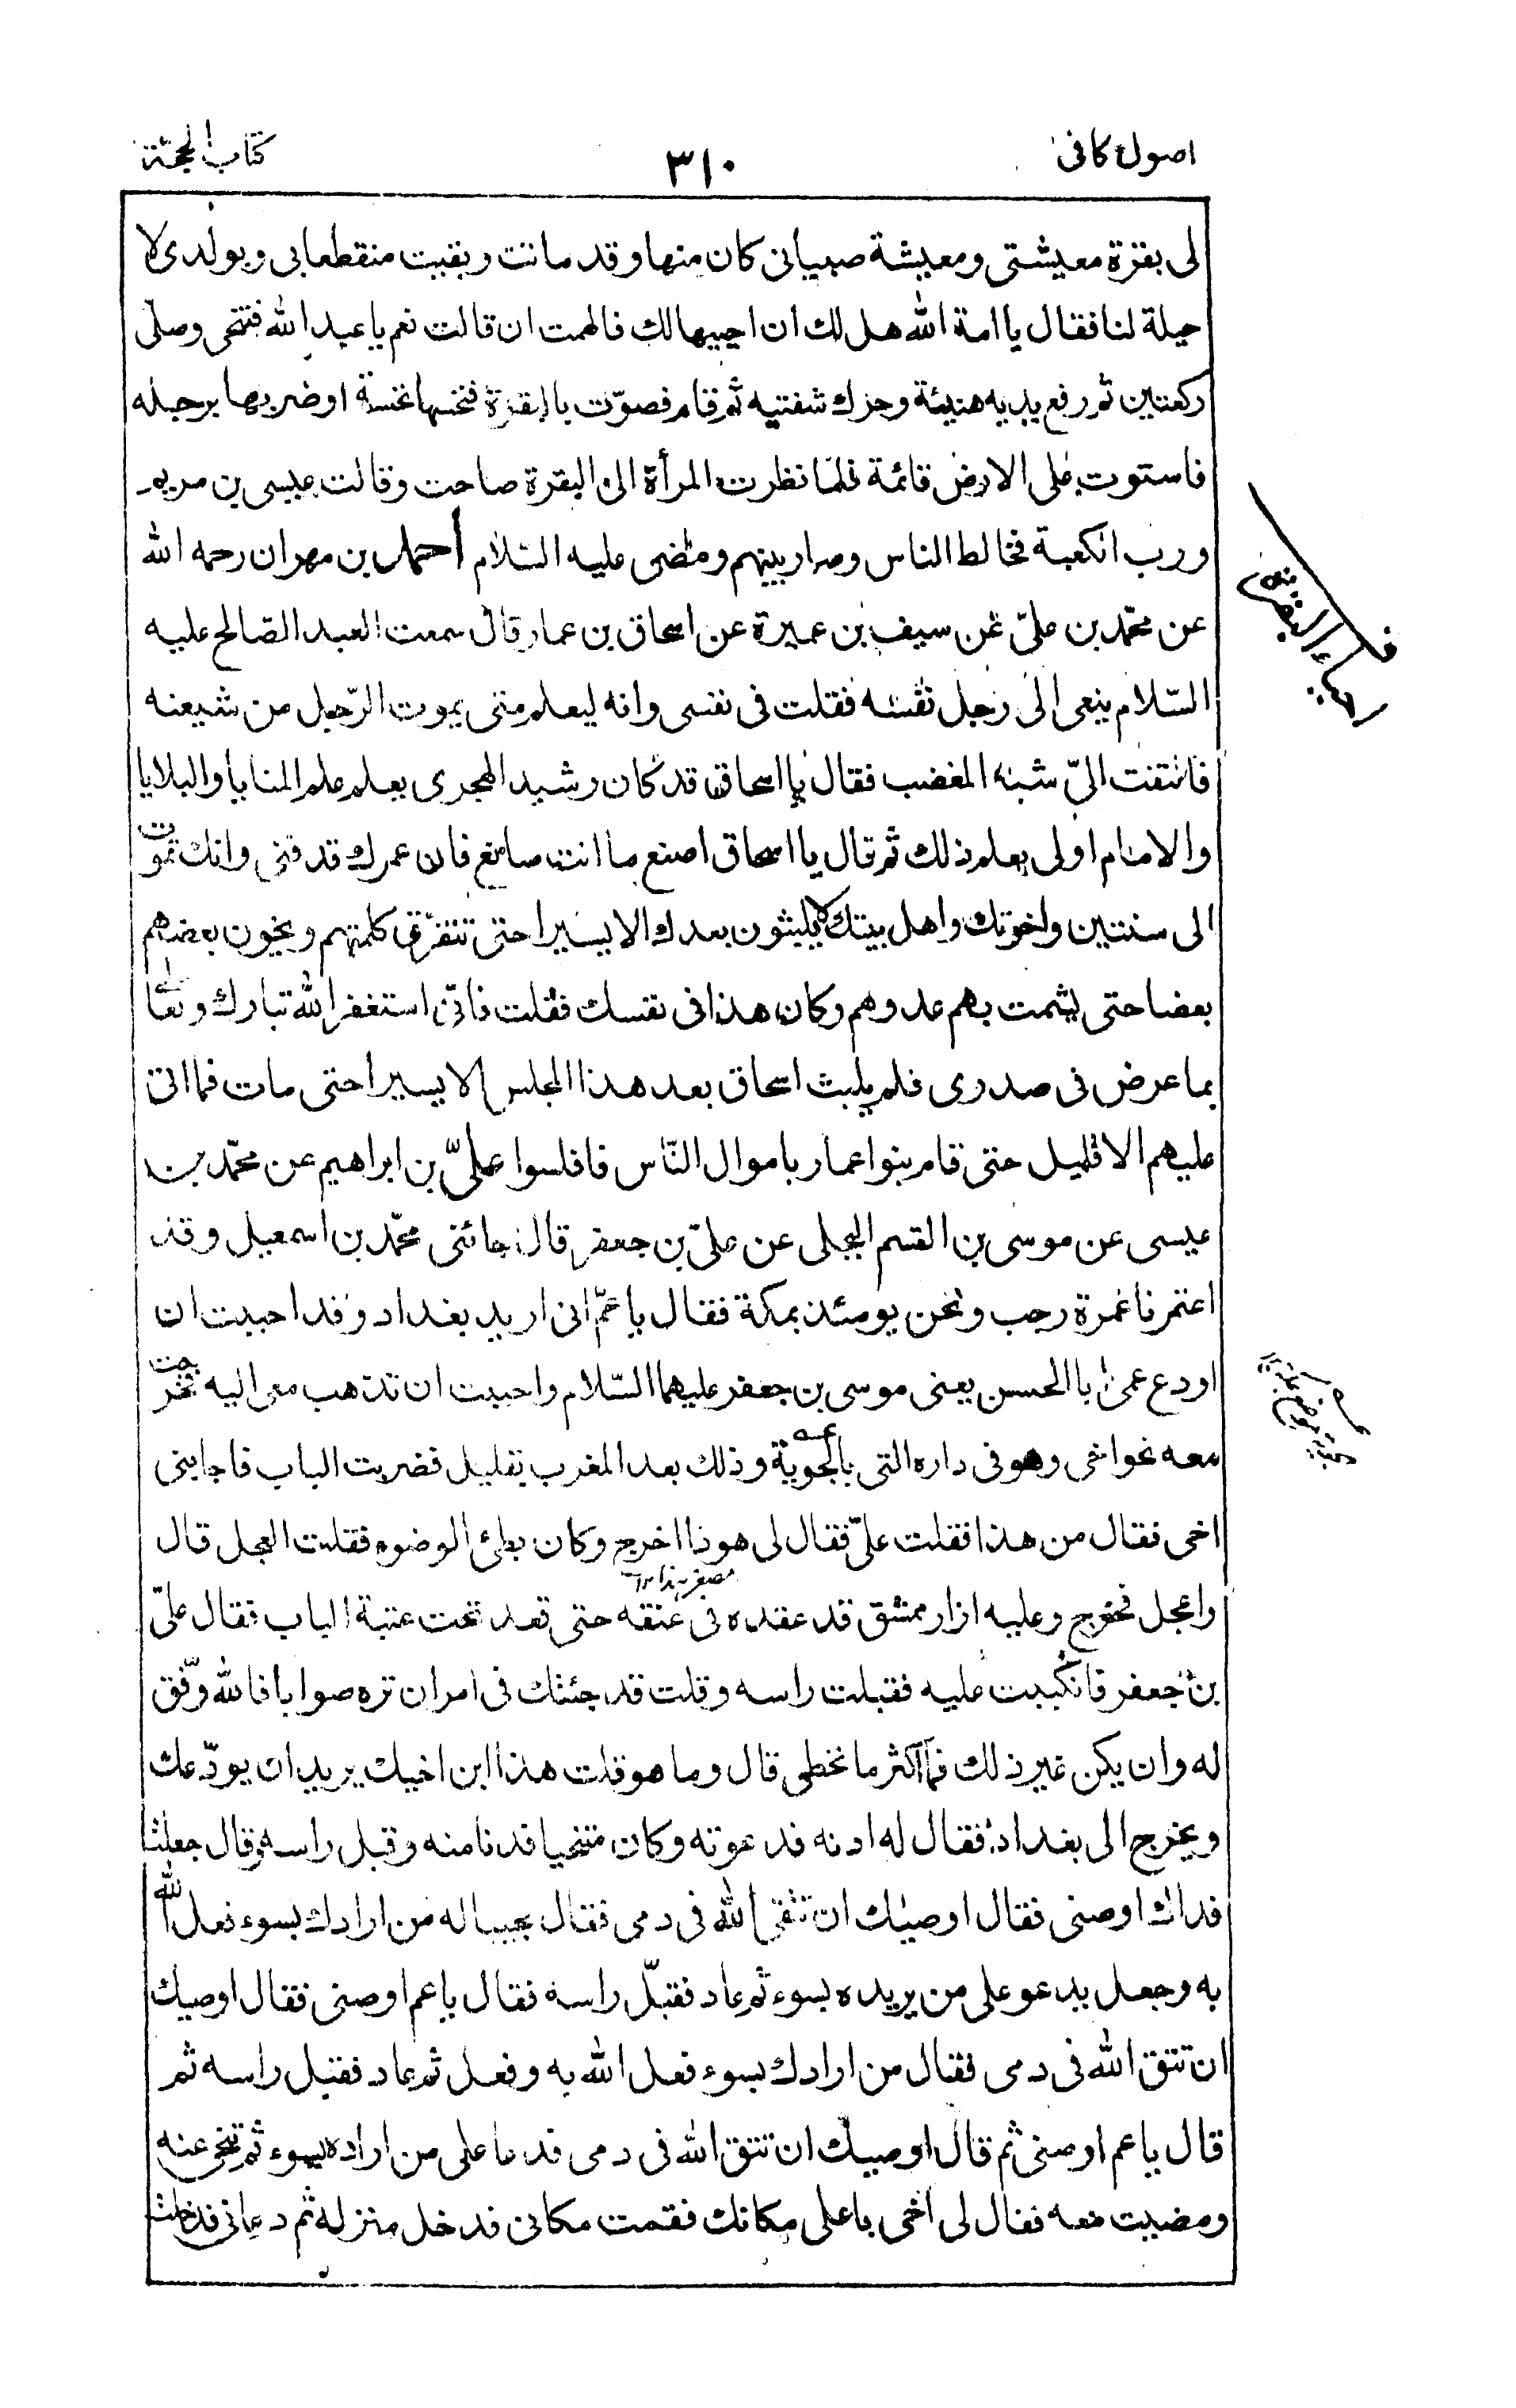 اصول كافى ٣١٠ كتاب الحجّة
لى بقرة معيشتى ومعيشة صبيانى كان منها وقد ماتت وبقيت منقطعا بى وبولدى لا
حيلة لنا فقال يا امة الله هل لك ان احييها لك فالهمت ان قالت نعم يا عبد الله فتنحى وصلّى
ركعتين ثم رفع يديه هنيئة وحرك شفتيه ثم قام فصوّت بالبقرة فنخسها نخسة او ضربها برجله
فاستوت على الارض قائمة فلمّا نظرت المرأة الى البقرة صاحت وقالت عيسى بن مريم
ورب الكعبة فخالط الناس وصار بينهم ومضى عليه السّلام أحمد بن مهران رحمه الله
عن محمّد بن علىّ عن سيف بن عميرة عن اسحاق بن عمار قال سمعت العبد الصّالح عليه
السّلام ينعى الى رجل نفسه فقلت فى نفسى وانه ليعلم متى يموت الرّجل من شيعته
فالتفت الىّ شبه المغضب فقال يا اسحاق قد كان رشيد الهجرى يعلم علم المنايا والبلايا
والامام اولى بعلم ذلك ثم قال يا اسحاق اصنع ما انت صانع فان عمرك قد فنى وانك تموت
الى سنتين واخوتك واهل بيتك لا يلبثون بعدك الا يسيرا حتى تتفرّق كلمتهم ويخون بعضهم
بعضا حتى يشمت بهم عدوهم وكان هذا فى نفسك فقلت فانّى استغفر الله تبارك وتعالى
بما عرض فى صدرى فلم يلبث اسحاق بعد هذا المجلس الا يسيرا حتى مات فما اتى
عليهم الا قليل حتى قام بنوا عمار باموال النّاس فافلسوا علىّ بن ابراهيم عن محمّد بن
عيسى عن موسى بن القسم البجلى عن علىّ بن جعفر قال جائنى محمّد بن اسمعيل وقد
اعتمرنا عمرة رجب ونحن يومئذ بمكة فقال يا عمّ انى اريد بغداد وقد احببت ان
اودع عمى ابا الحسن يعنى موسى بن جعفر عليهما السّلام واحببت ان تذهب معى اليه فخرجت
معه نحو اخى وهو فى داره التى بالحوبة وذلك بعد المغرب بقليل فضربت الباب فاجابنى
اخى فقال من هذا فقلت علىّ فقال لى هو ذا اخرج وكان بطئ الوضوء فقلت العجل قال
واعجل فخرج وعليه ازار ممشق قد عقده فى عنقه حتى قعد تحت عتبة الباب فقال علىّ
بن جعفر فانكببت عليه فقبلت راسه وقلت قد جئتك فى امر ان تره صوابا فالله وفّق
له وان يكن غير ذلك فما اكثر ما نخطى قال وما هو قلت هذا ابن اخيك يريد ان يودّعك
ويخرج الى بغداد فقال له ادنه فدعوته وكان متنحيا فدنا منه وقبل راسه وقال جعلت
فداك اوصنى فقال اوصيك ان تتقى الله فى دمى فقال مجيبا له من ارادك بسوء فعل الله
به وجعل يدعو على من يريده بسوء ثم عاد فقبّل راسه فقال يا عم اوصنى فقال اوصيك
ان تتق الله فى دمى فقال من ارادك بسوء فعل الله به وفعل ثم عاد فقبل راسه ثم
قال يا عم اوصنى ثم قال اوصيك ان تتق الله فى دمى فدعا على من اراده بسوء ثم تنحى عنه
ومضيت معه فقال لى اخى يا على مكانك فقمت مكانى فدخل منزله ثم دعانى فدخلت
احياء البقرة